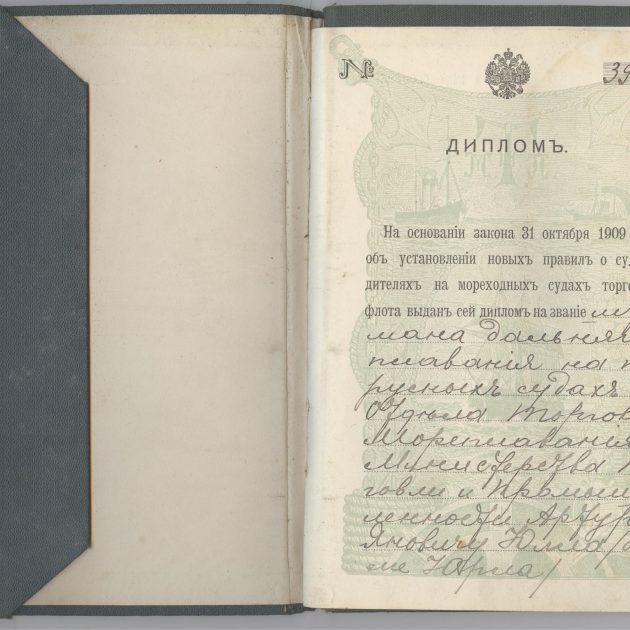 № 39
ДИПЛОМЪ.
На основаніи закона 31 октября 1909
объ установленіи новыхъ правилъ о су
дителяхъ на мореходныхъ судахъ торго
флота выданъ сей дипломъ на званіе
мана дальняго
плаванія на
русныхъ судахъ
Отдѣла Торгов
Мореплаванія
Министерства
говли и Промыш
ленности Артуру
Яновичу